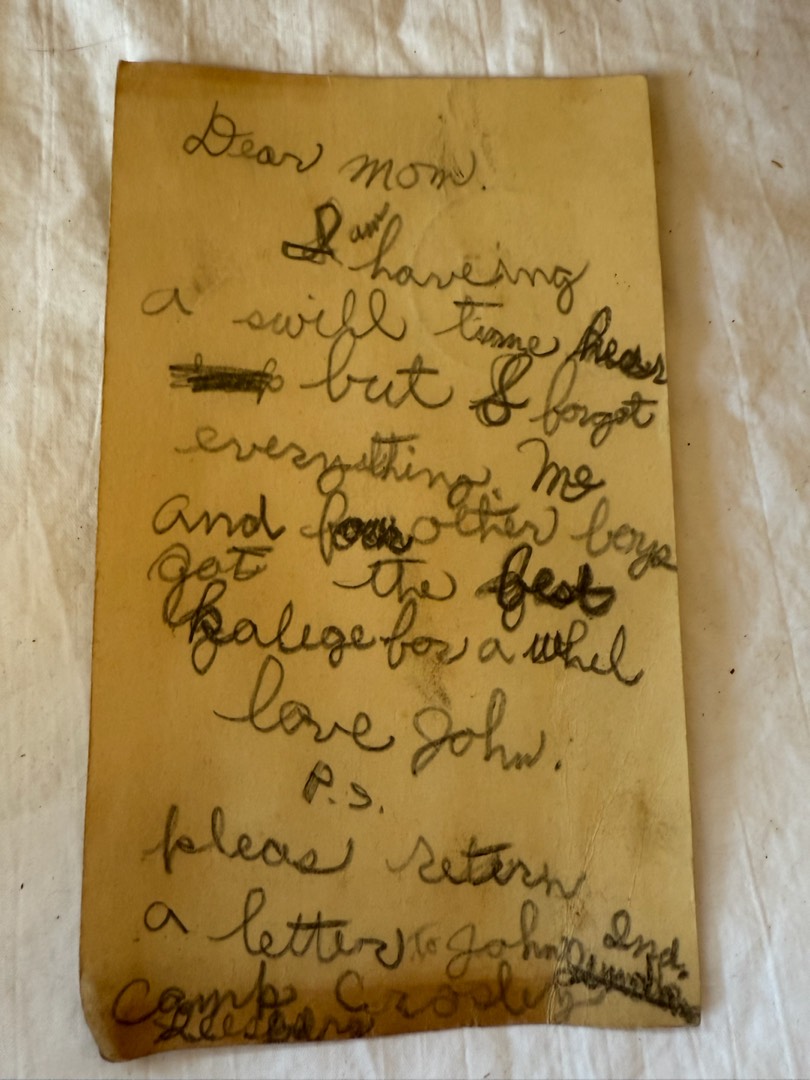 Dear mom.
I am haveing
a swill time hear
but I forgot
everything. Me
and four other boys
got the best
for a whil
love John.
P.S.
pleas retern
a letter to John
Ind.
Camp Crosley